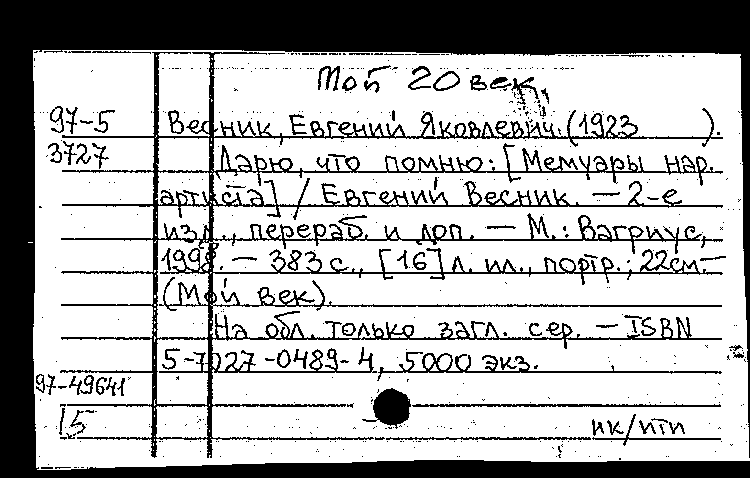 Мой 20 век,
97-5 Весник, Евгений Яковлевич (1923 ).
3727 Дарю, что помню: [Мемуары нар.
артиста] / Евгений Весник. — 2-е
изд., перераб. и доп. — М.: Вагриус,
1998. — 383 с., [16] л. ил., портр.; 22см.—
(Мой век).
На обл. только загл. сер. — ISBN
5-7027-0489-4, 5000 экз.
97-49641
15
ик/ити